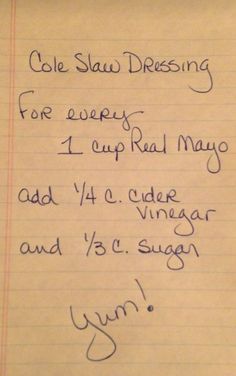 Cole Slaw Dressing
For every
1 cup Real Mayo
add 1/4 c. cider
vinegar
and 1/3 c. sugar
Yum!